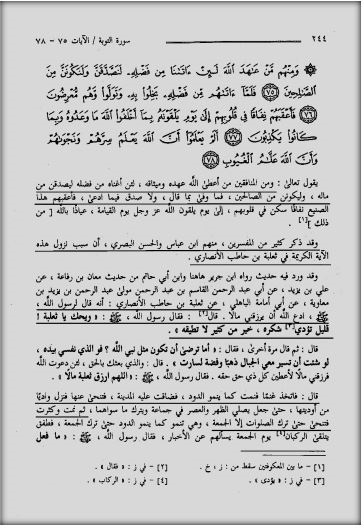 ٢٤٤ سورة التوبة / الآيات ٧٥ – ٧٨
۞ وَمِنْهُم مَّنْ عَٰهَدَ ٱللَّهَ لَئِنْ ءَاتَىٰنَا مِن فَضْلِهِۦ لَنَصَّدَّقَنَّ وَلَنَكُونَنَّ مِنَ
ٱلصَّٰلِحِينَ ﴿٧٥﴾ فَلَمَّآ ءَاتَىٰهُم مِّن فَضْلِهِۦ بَخِلُوا۟ بِهِۦ وَتَوَلَّوا۟ وَّهُم مُّعْرِضُونَ
﴿٧٦﴾ فَأَعْقَبَهُمْ نِفَاقًا فِى قُلُوبِهِمْ إِلَىٰ يَوْمِ يَلْقَوْنَهُۥ بِمَآ أَخْلَفُوا۟ ٱللَّهَ مَا وَعَدُوهُ وَبِمَا
كَانُوا۟ يَكْذِبُونَ ﴿٧٧﴾ أَلَمْ يَعْلَمُوٓا۟ أَنَّ ٱللَّهَ يَعْلَمُ سِرَّهُمْ وَنَجْوَىٰهُمْ
وَأَنَّ ٱللَّهَ عَلَّٰمُ ٱلْغُيُوبِ ﴿٧٨﴾
يقول تعالى : ومن المنافقين من أعطى الله عهده وميثاقه ، لئن أغناه من فضله ليصدقن من
ماله ، وليكونن من الصالحين ، فما وفى بما قال ، ولا صدق فيما ادعى ، فأعقبهم هذا
الصنيع نفاقًا سكن في قلوبهم ، إلى يوم يلقون الله عز وجل يوم القيامة ، عياذًا بالله [ من
ذلك ][١] .
وقد ذكر كثير من المفسرين ، منهم ابن عباس والحسن البصري ، أن سبب نزول هذه
الآية الكريمة في ثعلبة بن حاطب الأنصاري .
وقد ورد فيه حديث رواه ابن جرير هاهنا وابن أبي حاتم من حديث معان بن رفاعة ، عن
علي بن يزيد ، عن أبي عبد الرحمن القاسم بن عبد الرحمن مولى عبد الرحمن بن يزيد بن
معاوية ، عن أبي أمامة الباهلي ، عن ثعلبة بن حاطب الأنصاري : أنه قال لرسول الله ،
ﷺ : ادع الله أن يرزقني مالًا . قال[٢] : فقال رسول الله ، ﷺ : « ويحك يا ثعلبة !
قليل تؤدي[٣] شكره ، خير من كثير لا تطيقه » .
قال : ثم قال مرة أخرى ، فقال : « أما ترضى أن تكون مثل نبي الله ؟ فو الذي نفسي بيده ،
لو شئت أن تسير معي الجبال ذهبًا وفضة لسارت » . قال : والذي بعثك بالحق ، لئن دعوت الله
فرزقني مالًا لأعطين كل ذي حق حقه . فقال رسول الله ، ﷺ : « اللهم ارزق ثعلبة مالًا » .
قال : فاتخذ غنمًا فنمت كما ينمو الدود ، فضاقت عليه المدينة ، فتنحى عنها فنزل واديًا
من أوديتها ، حتى جعل يصلي الظهر والعصر في جماعة ويترك ما سواهما ، ثم نمت وكثرت
فتنحى حتى ترك الصلوات إلا الجمعة ، وهي تنمو كما ينمو الدود حتى ترك الجمعة ، فطفق
يتلقى الركبان[٤] يوم الجمعة يسألهم عن الأخبار ، فقال رسول الله ، ﷺ : « ما فعل
[١] – ما بين المعكوفتين سقط من : ز ، خ . [٢] – في ز : « فقال » .
[٣] – في ز : « يؤدى » . [٤] – في ز : « الركاب » .